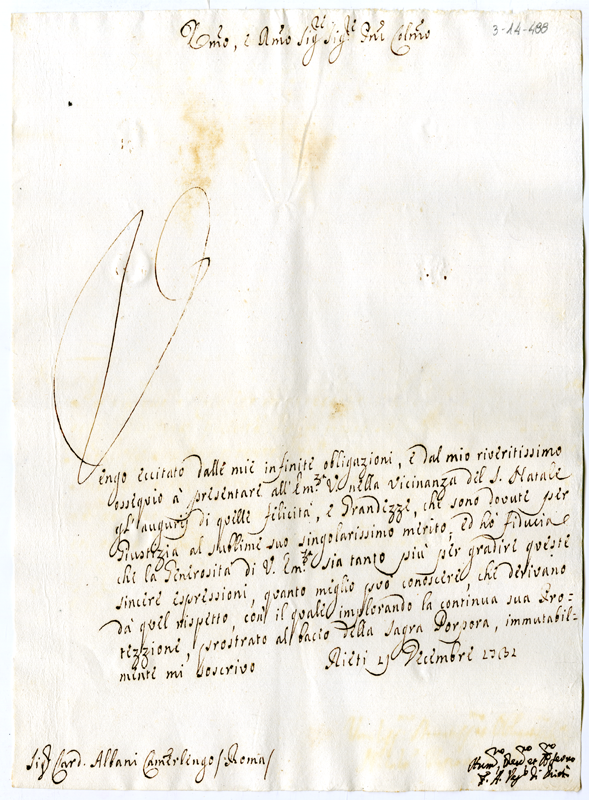 3-14-488
E̅mo, e R̅mo Sig.re Sig.re P̅ne Col̅mo
Vengo eccitato dalle mie infinite obligazioni, e dal mio riveritissimo
ossequio à presentare all'Em.za V. nella Vicinanza del S. Natale
gl'augurij di quelle felicità, e Grandezze, che sono dovute per
Giustizia al sublime suo singolarissimo merito; ed hò fiducia
che la Generosità di V. Em.za sia tanto più per gradire queste
sincere espressioni, quanto meglio può conoscere, che derivano
da quel rispetto, con il quale implorando la continua sua Pro-
tezzione, prostrato al bacio della Sagra Porpora, immutabil-
mente mi soscrivo Rieti Decembre
Sig.r Card. Albani Camerlengo /Roma/
di Rieti